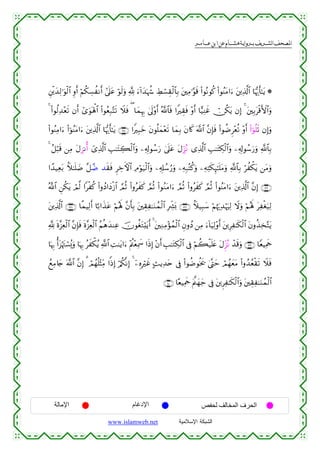 المصحف الشريف برواية هشام عن ابن عامر
* يَٰٓأَيُّهَا ٱلَّذِينَ ءَامَنُوا۟ كُونُوا۟ قَوَّٰمِينَ بِٱلْقِسْطِ شُهَدَآءَ لِلَّهِ وَلَوْ عَلَىٰٓ أَنفُسِكُمْ أَوِ ٱلْوَٰلِدَيْنِ
وَٱلْأَقْرَبِينَ ۚ إِن يَكُنْ غَنِيًّا أَوْ فَقِيرًا فَٱللَّهُ أَوْلَىٰ بِهِمَا ۖ فَلَا تَتَّبِعُوا۟ ٱلْهَوَىٰٓ أَن تَعْدِلُوا۟ ۚ
وَإِن تَلُوٓا۟ أَوْ تُعْرِضُوا۟ فَإِنَّ ٱللَّهَ كَانَ بِمَا تَعْمَلُونَ خَبِيرًا ﴿١٣٥﴾ يَٰٓأَيُّهَا ٱلَّذِينَ ءَامَنُوٓا۟ ءَامِنُوا۟
بِٱللَّهِ وَرَسُولِهِۦ وَٱلْكِتَٰبِ ٱلَّذِى نُزِّلَ عَلَىٰ رَسُولِهِۦ وَٱلْكِتَٰبِ ٱلَّذِىٓ أُنزِلَ مِن قَبْلُ ۚ
وَمَن يَكْفُرْ بِٱللَّهِ وَمَلَٰٓئِكَتِهِۦ وَكُتُبِهِۦ وَرُسُلِهِۦ وَٱلْيَوْمِ ٱلْءَاخِرِ فَقَد ضَّلَّ ضَلَٰلًۢا بَعِيدًا
﴿١٣٦﴾ إِنَّ ٱلَّذِينَ ءَامَنُوا۟ ثُمَّ كَفَرُوا۟ ثُمَّ ءَامَنُوا۟ ثُمَّ كَفَرُوا۟ ثُمَّ ٱزْدَادُوا۟ كُفْرًا لَّمْ يَكُنِ ٱللَّهُ
لِيَغْفِرَ لَهُمْ وَلَا لِيَهْدِيَهُمْ سَبِيلًۢا ﴿١٣٧﴾ بَشِّرِ ٱلْمُنَٰفِقِينَ بِأَنَّ لَهُمْ عَذَابًا أَلِيمًا ﴿١٣٨﴾ ٱلَّذِينَ
يَتَّخِذُونَ ٱلْكَٰفِرِينَ أَوْلِيَآءَ مِن دُونِ ٱلْمُؤْمِنِينَ ۚ أَيَبْتَغُونَ عِندَهُمُ ٱلْعِزَّةَ فَإِنَّ ٱلْعِزَّةَ لِلَّهِ
جَمِيعًا ﴿١٣٩﴾ وَقَدْ نُزِّلَ عَلَيْكُمْ فِى ٱلْكِتَٰبِ أَنْ إِذَا سَمِعْتُمْ ءَايَٰتِ ٱللَّهِ يُكْفَرُ بِهَا وَيُسْتَهْزَأُ بِهَا
فَلَا تَقْعُدُوا۟ مَعَهُمْ حَتَّىٰ يَخُوضُوا۟ فِى حَدِيثٍ غَيْرِهِۦٓ ۚ إِنَّكُمْ إِذًا مِّثْلُهُمْ ۗ إِنَّ ٱللَّهَ جَامِعُ
ٱلْمُنَٰفِقِينَ وَٱلْكَٰفِرِينَ فِى جَهَنَّمَ جَمِيعًا ﴿١٤٠﴾
الحرف المخالف لحفص الإدغام الإمالة
الشبكة الإسلامية www.islamweb.net